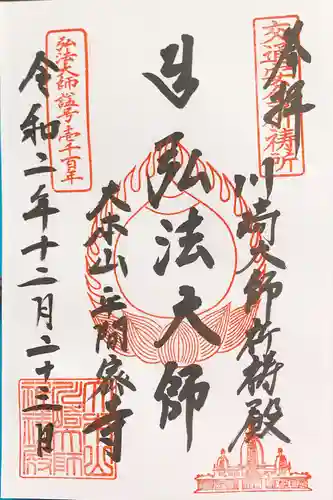 奉拝
交通安全祈祷所
川崎大師祈祷殿
弘法大師
大本山平間寺
弘法大師諡号壱千百年
令和二年十二月二十三日